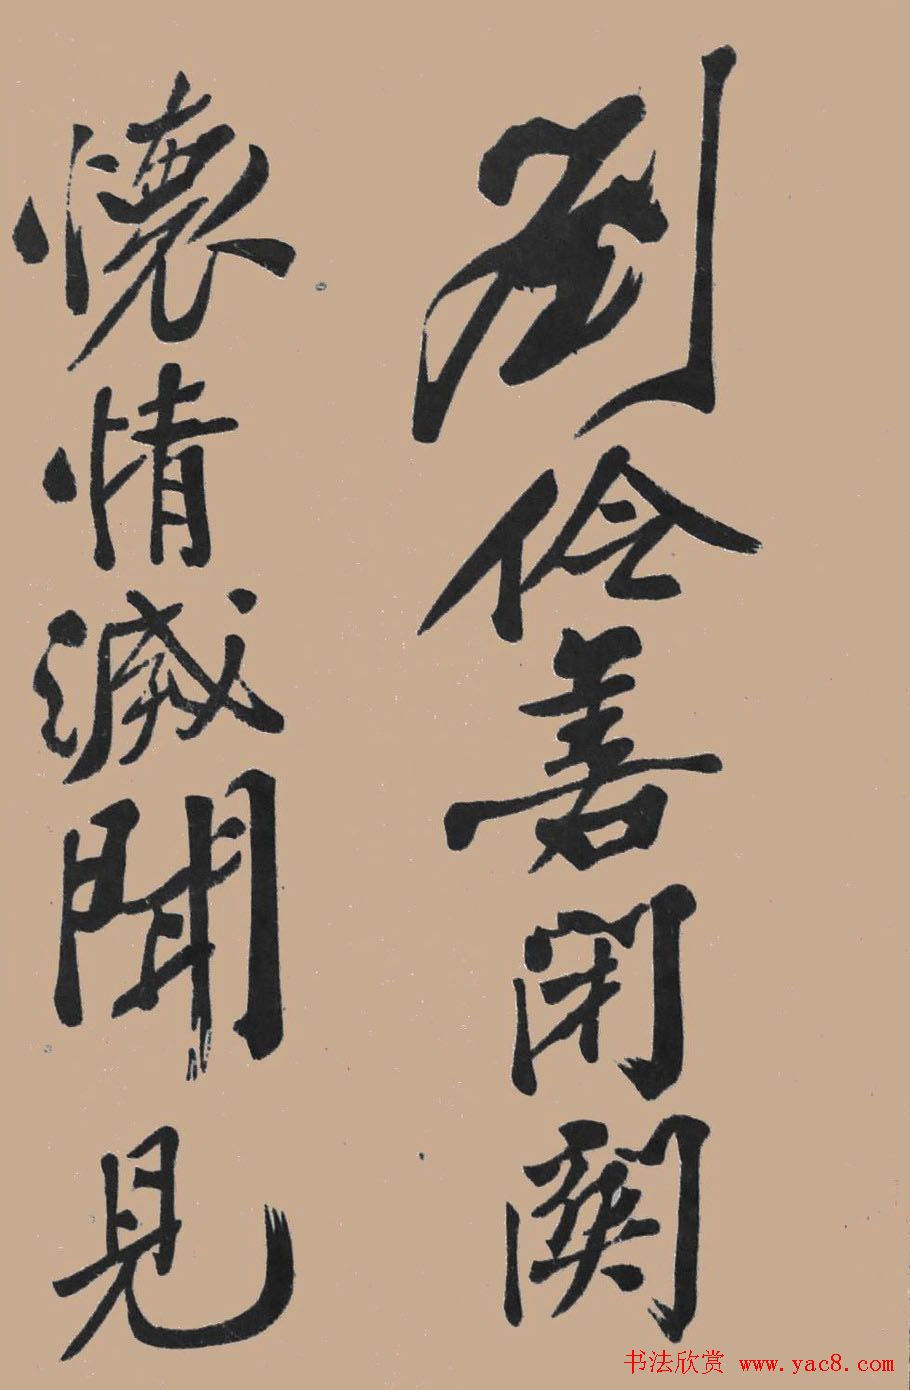 劉伶善閉關
懷情滅聞見
书法欣赏 www.yac8.com